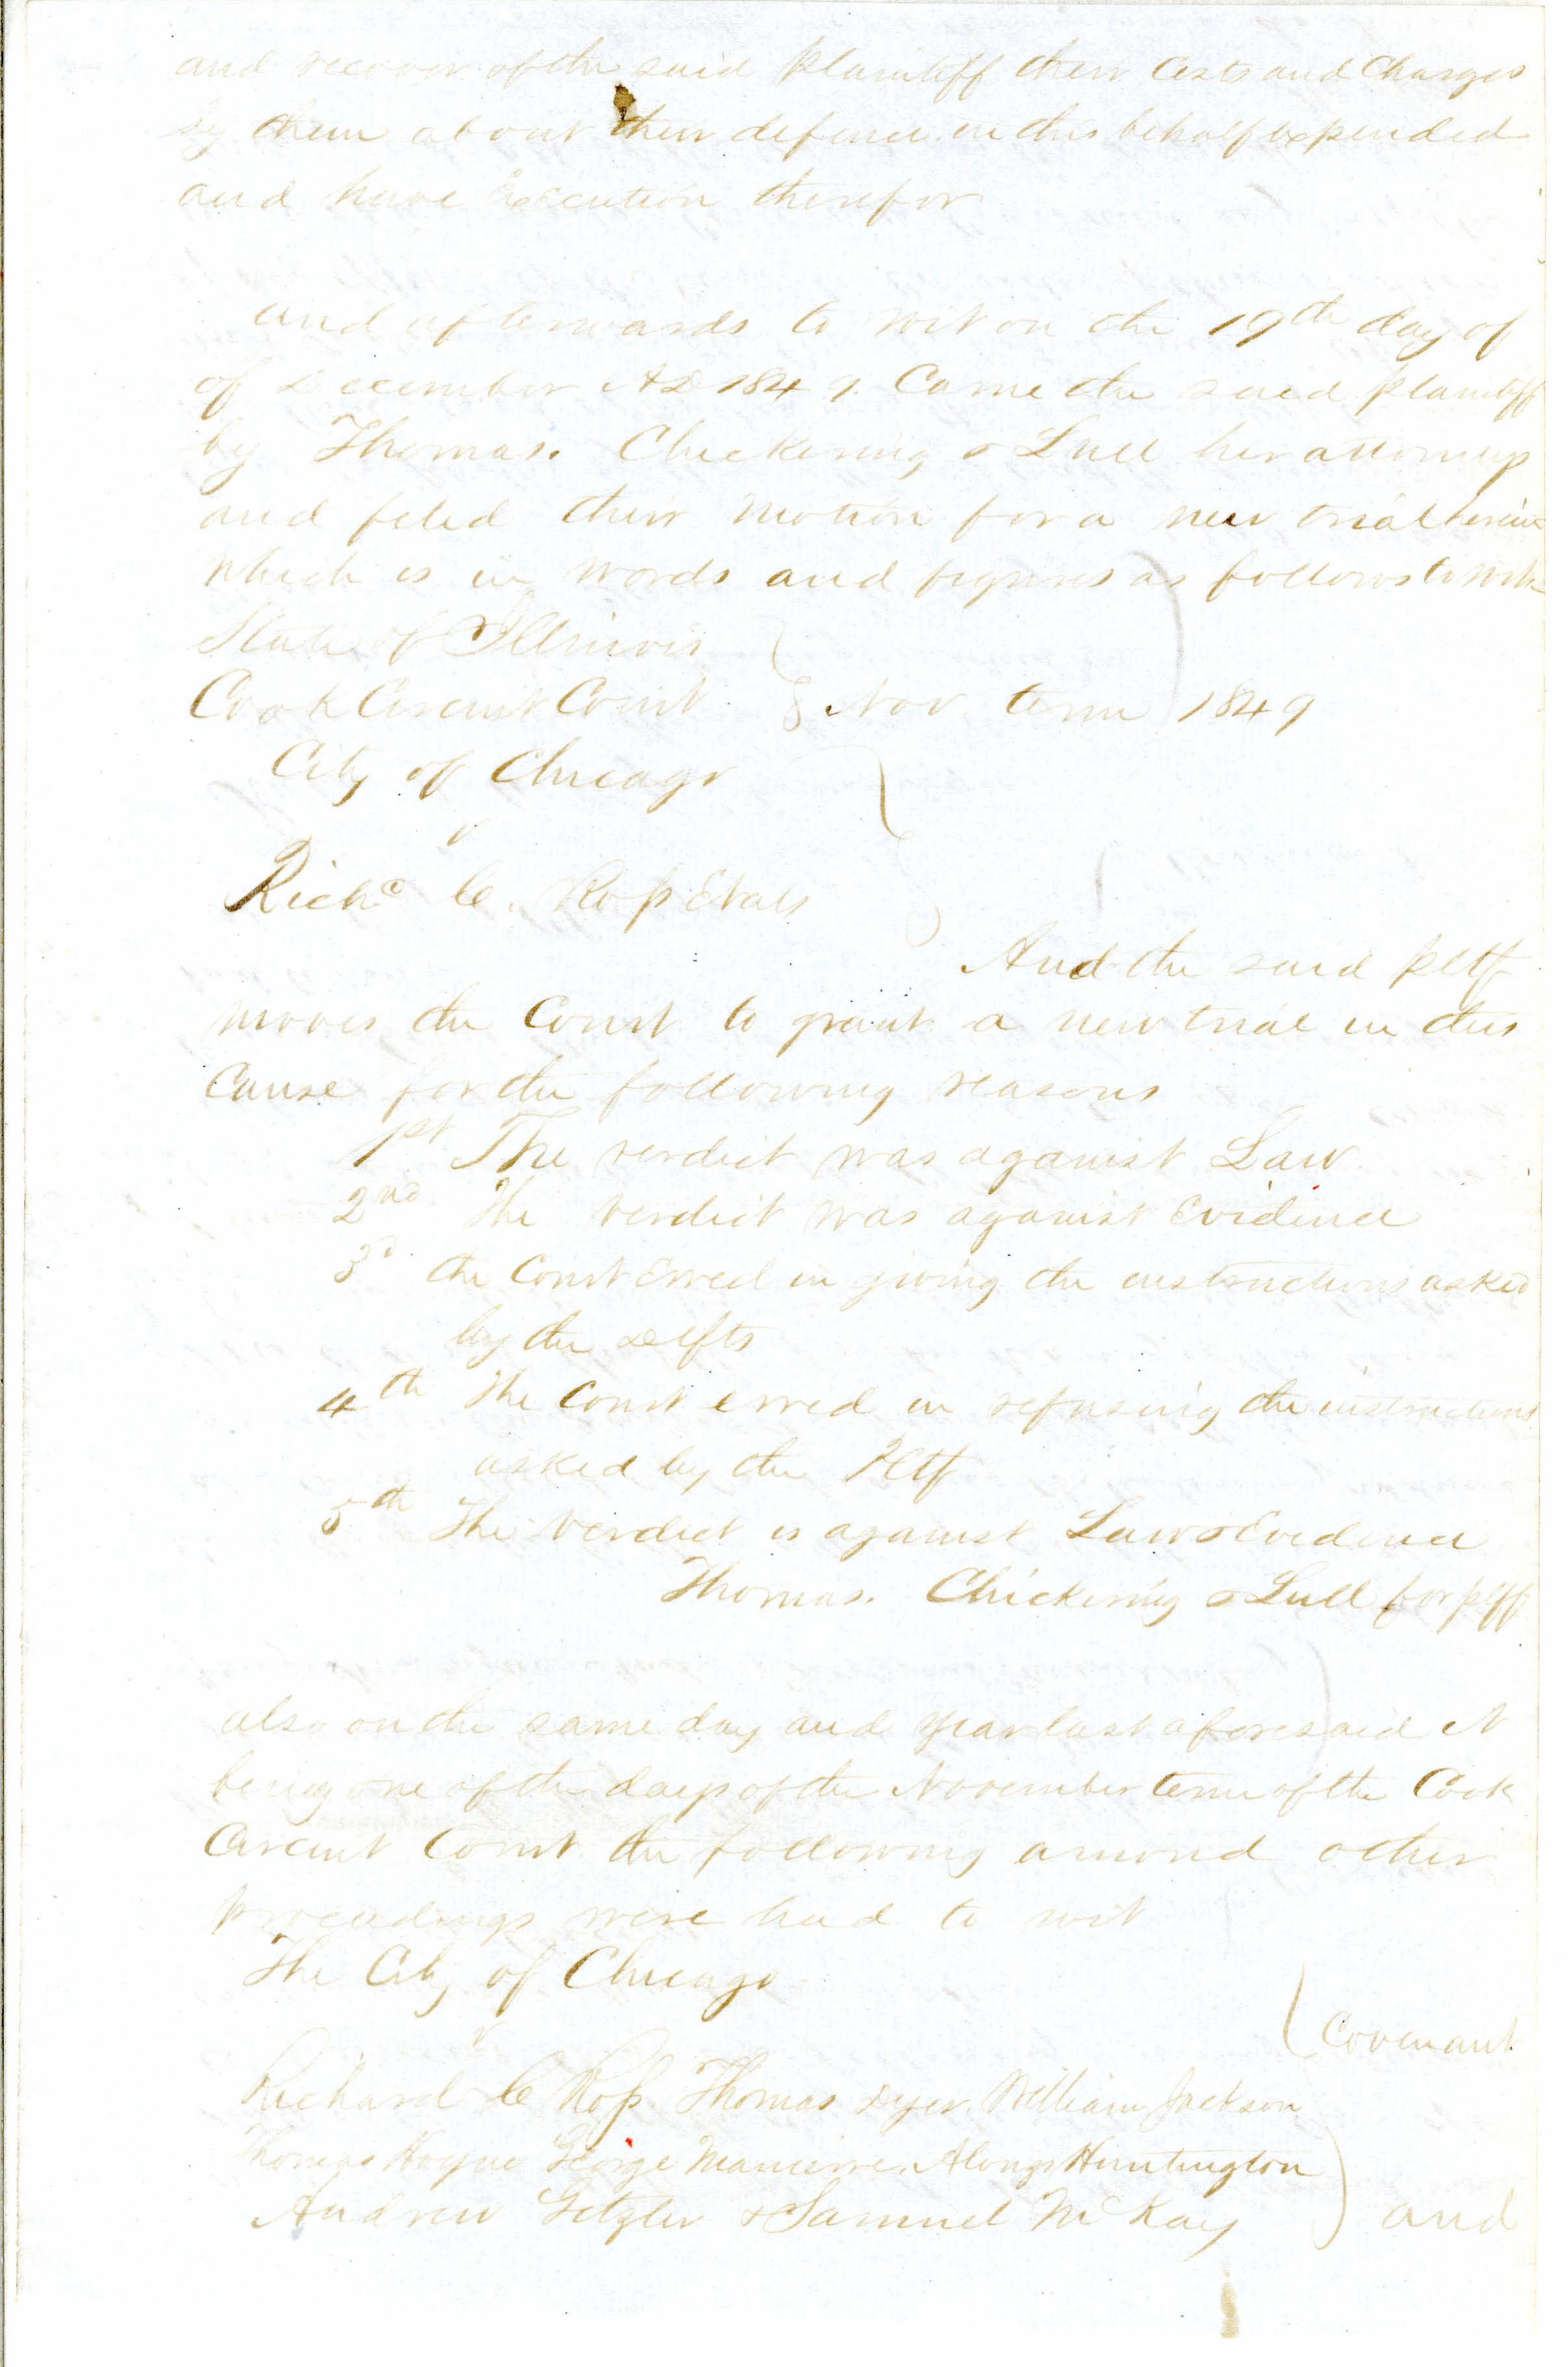 and recover of the said Plaintiff their Costs and Charges
by them about their defence in this behalf expended
and have Execution therefor
and afterwards to wit on the 19th day of
of December AD 1849. Came the said plaintiff
by Thomas. Chickering & Lull her attorneys
and filed their motion for a new trial herein
which is in words and figures as follows to wit
State of Illinois
Cook Circuit Court } Nov. term 1849
City of Chicago
v
Richd C. Ross Et als
And the said pltf
moves the Court to grant a new trial in this
Cause for the following reasons
1st The verdict was against Law
2nd The verdict was against Evidence
3d the Court Erred in giving the instructions asked
by the Defts
4th The Court erred in refusing the instructions
asked by the Pltf
5th The verdict is against Law & Evidence
Thomas. Chickering & Lull for plff
also on the same day and year last aforesaid it
being one of the days of the November term of the Cook
Circuit Court the following amond other
proceedings were had to wit
The City of Chicago
v
Covenant
Richard C Ross Thomas Dyer. William Jackson
Thomas Hoyne George Manierre. Alonzo Huntington
Andrew Getzler & Samuel McKay } and